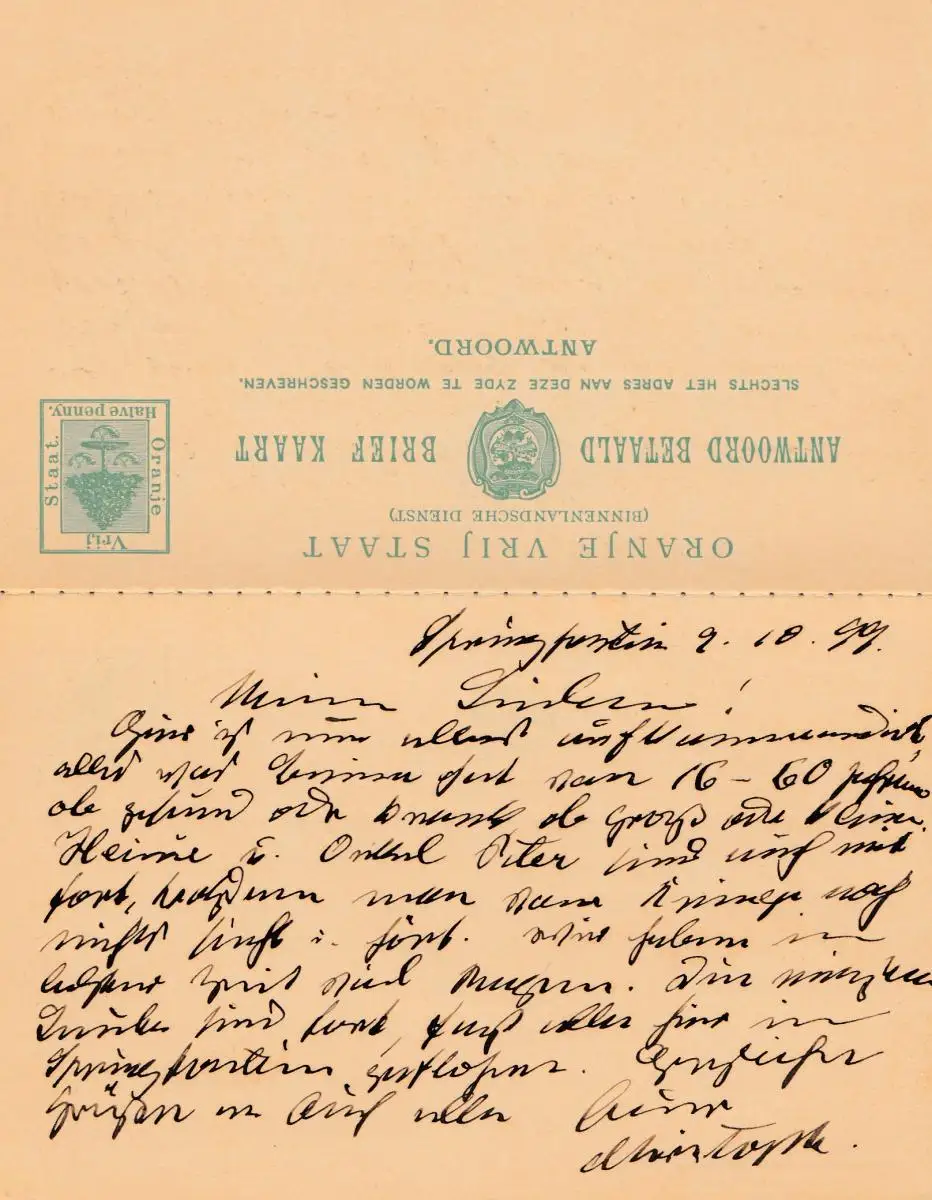 ORANJE VRIJ STAAT
(BINNENLANDSCHE DIENST)
ANTWOORD BETAALD BRIEF KAART
SLECHTS HET ADRES AAN DEZE ZYDE TE WORDEN GESCHREVEN.
ANTWOORD.
Oranje Vrij Staat.
Halve penny.
Springfontein 9. 10. 99.
Meine Lieben!
Hier ist nun alles
alles was Beine hat von 16 - 60 Jahren
ob gesund oder krank ob Groß oder Kleine.
Heine u. Onkel Peter sind auch mit
fort, trotzdem man vom Kriege noch
nichts sieht u. hört. Wir haben in
letzter Zeit viel Regen. Die meisten
Leute sind fort, fast alle hier in
Springfontein geflohen. Herzliche
Grüße an Euch alle Euer